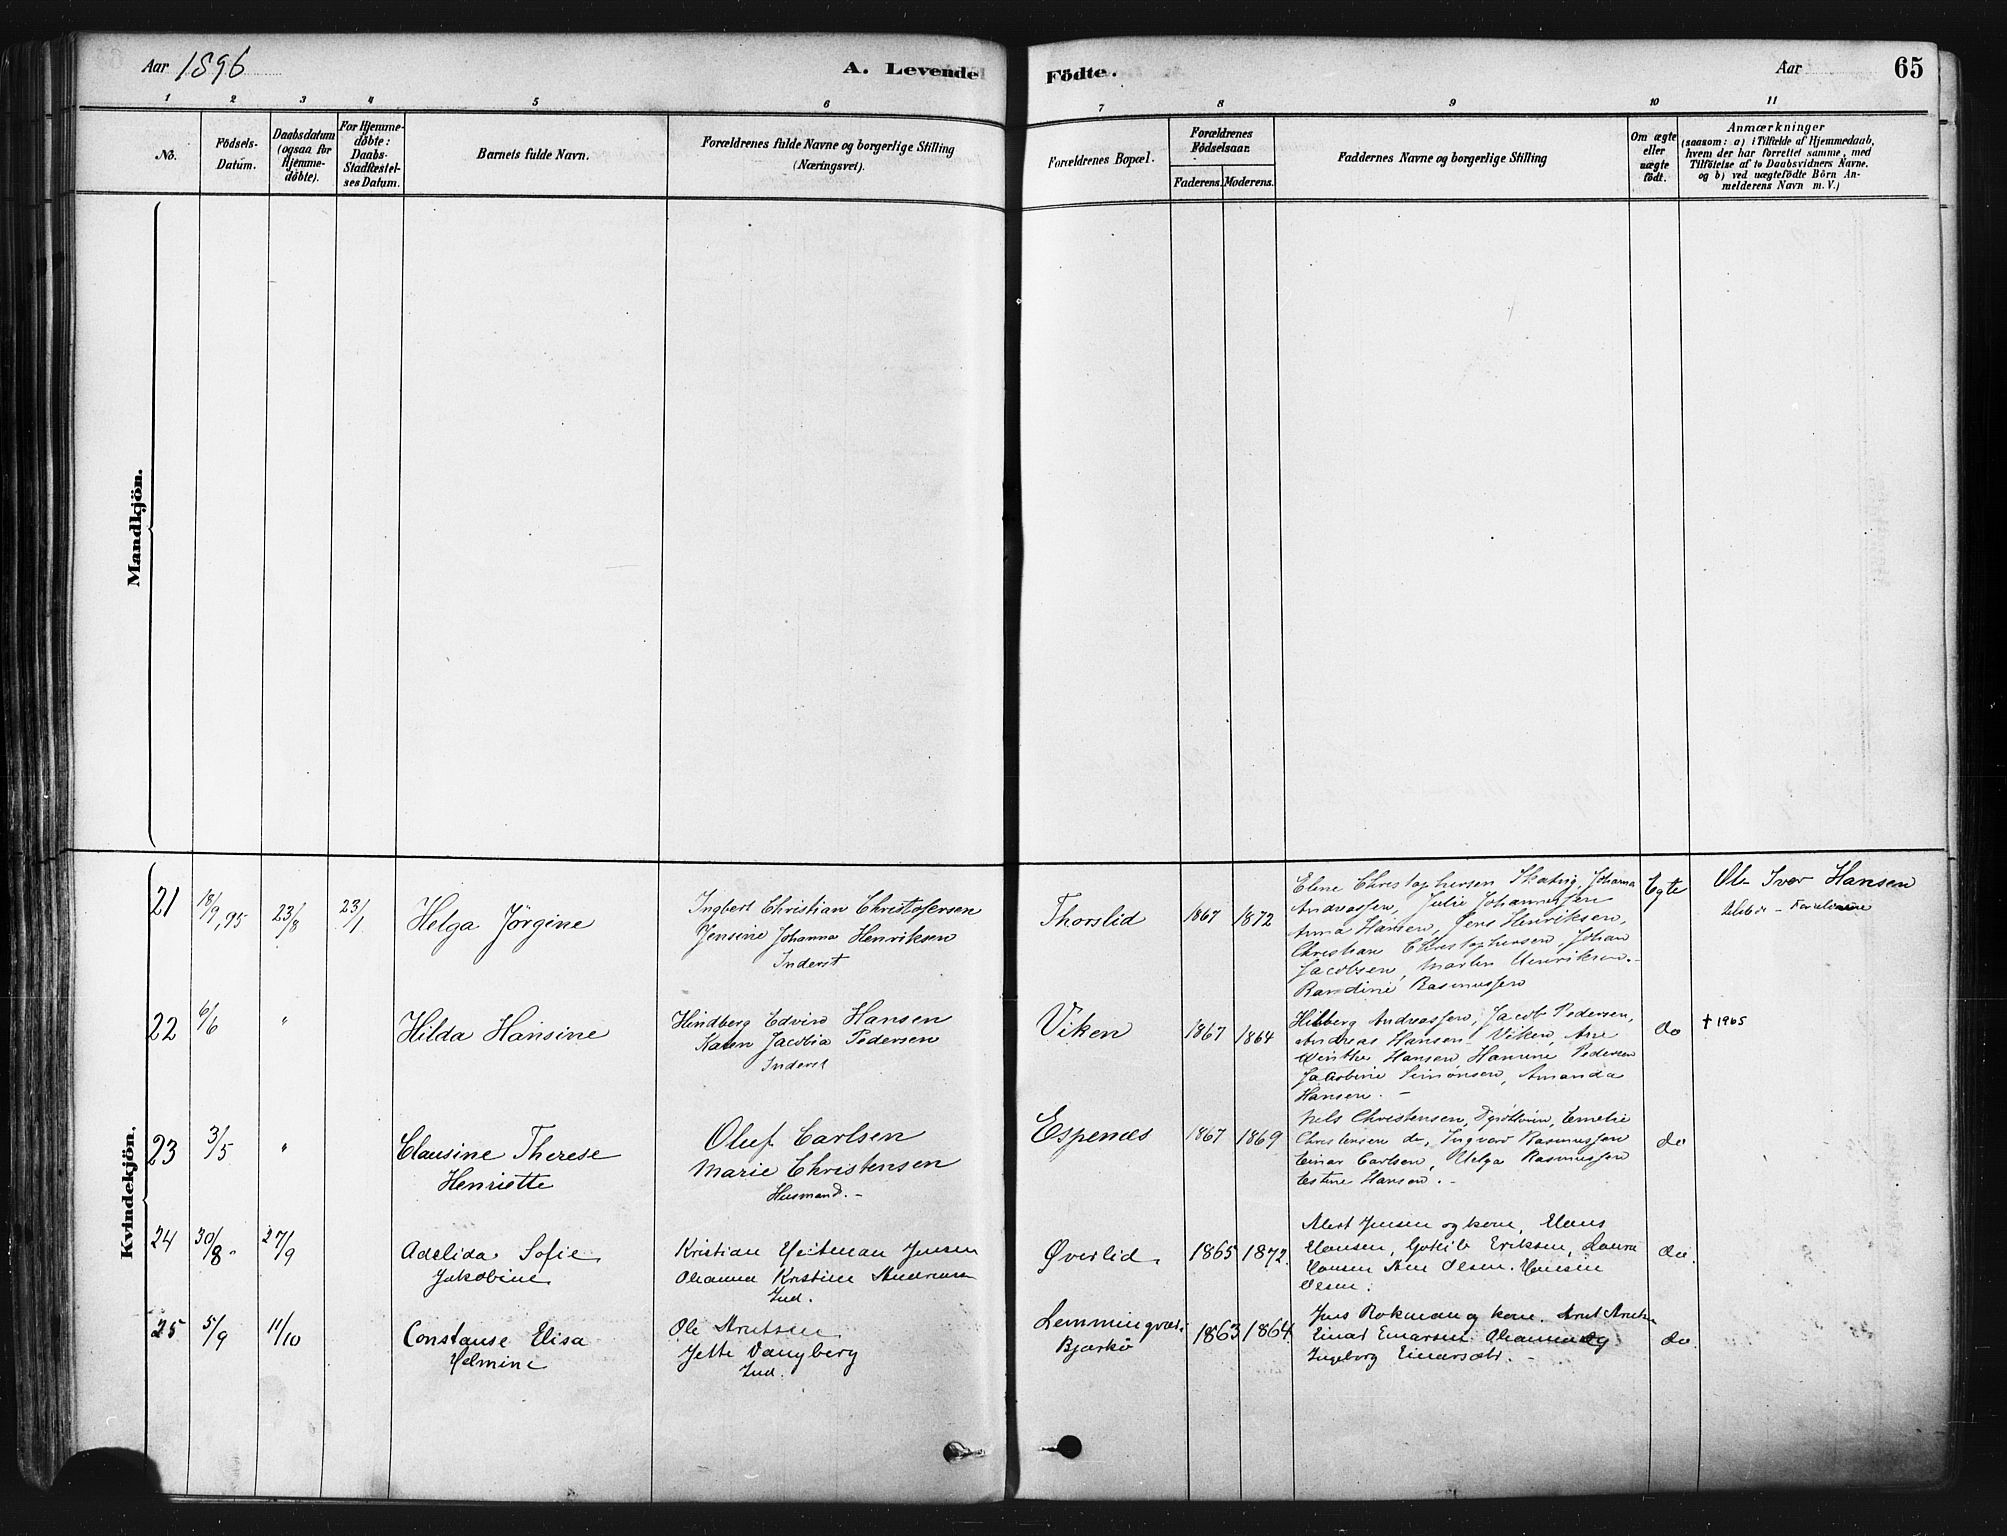 Aar 1896
A. Levende Födte.
Aar
65
1 2 3 4 5 6 7 8 9 10 11
No.
Födsels-
Datum.
Daabsdatum
(ogsaa for
Hjemme-
döbte).
For Hjemme-
döbte:
Daabs-
Stadfæstel-
ses Datum.
Barnets fulde Navn.
Forældrenes fulde Navne og borgerlige Stilling
(Næringsvei).
Forældrenes Bopæl.
Forældrenes
Födselsaar.
Faderens. Moderens.
Faddernes Navne og borgerlige Stilling
Om ægte
eller
uægte
födt.
Anmærkninger
(saasom: a) i Tilfælde af Hjemmedaab,
hvem der har forrettet samme, med
Tilföielse af to Daabsvidners Navne.
og b) ved uægtefödte Börn An-
melderens Navn m. V.)
Mandkjön.
Kvindekjön.
21
18/9, 95
23/8
23/1
Helga Jörgine
Ingbert Christian Christofersen
Jensine Johanna Henriksen
Inderst
Thorslid
1867
1872
Elene Christophersen Johanna
Andreassen, Julie Johannessen
Anna Hansen, Jens Henriksen,
Christian Christophersen, Johan
Jacobsen, Martin Henriksen.
Randine Rasmussen
Egte
Ole Iver Hansen
22
6/6
"
Hilda Hansine
Hindberg Edvin Hansen
Karen Jacobia Pedersen
Inderst
Viken
1867
1864
Hilberg Andreassen, Jacob Pedersen,
Andreas Hansen Viken, Ane
Hansen Hansine Pedersen
Jacobine Simonsen, Amanda
Hansen. -
do
† 1965
23
3/5
"
Clausine Therese
Henriette
Oluf Carlsen
Marie Christensen
Husmand. -
Espenæs
1867
1869
Nels Christensen, Emelie
Christensen do, Ingvard Rasmussen
Einar Carlsen, Helga Rasmussen
Estine Hansen. -
do
24
30/8
27/9
Adelida Sofie
Jakobine
Kristian Heitman Jensen
Oleanna Kristine
Ind.
Øverlid
1865
1872.
Jensen og kone, Hans
Hansen, Eriksen, Laura
Hansen Ane Olsen. Hansine
Olsen.
do.
25
5/9
11/10
Constanse Elisa
Helmine
Ole Arntsen
Jette Vangberg
Ind.
Lemmingvær.
Bjarkö
1863
1864
Jens Rokman og kone. Arnt
Einar Einarsen.
Ingeborg Einarsdtr. -
do.